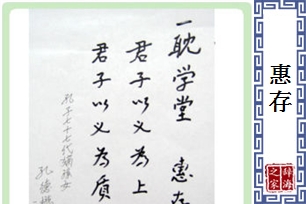 一耽学堂 惠存
君子以义为上
君子以义為质
孔子七十七代嫡孙女
孔德懋
惠存
辞海之家